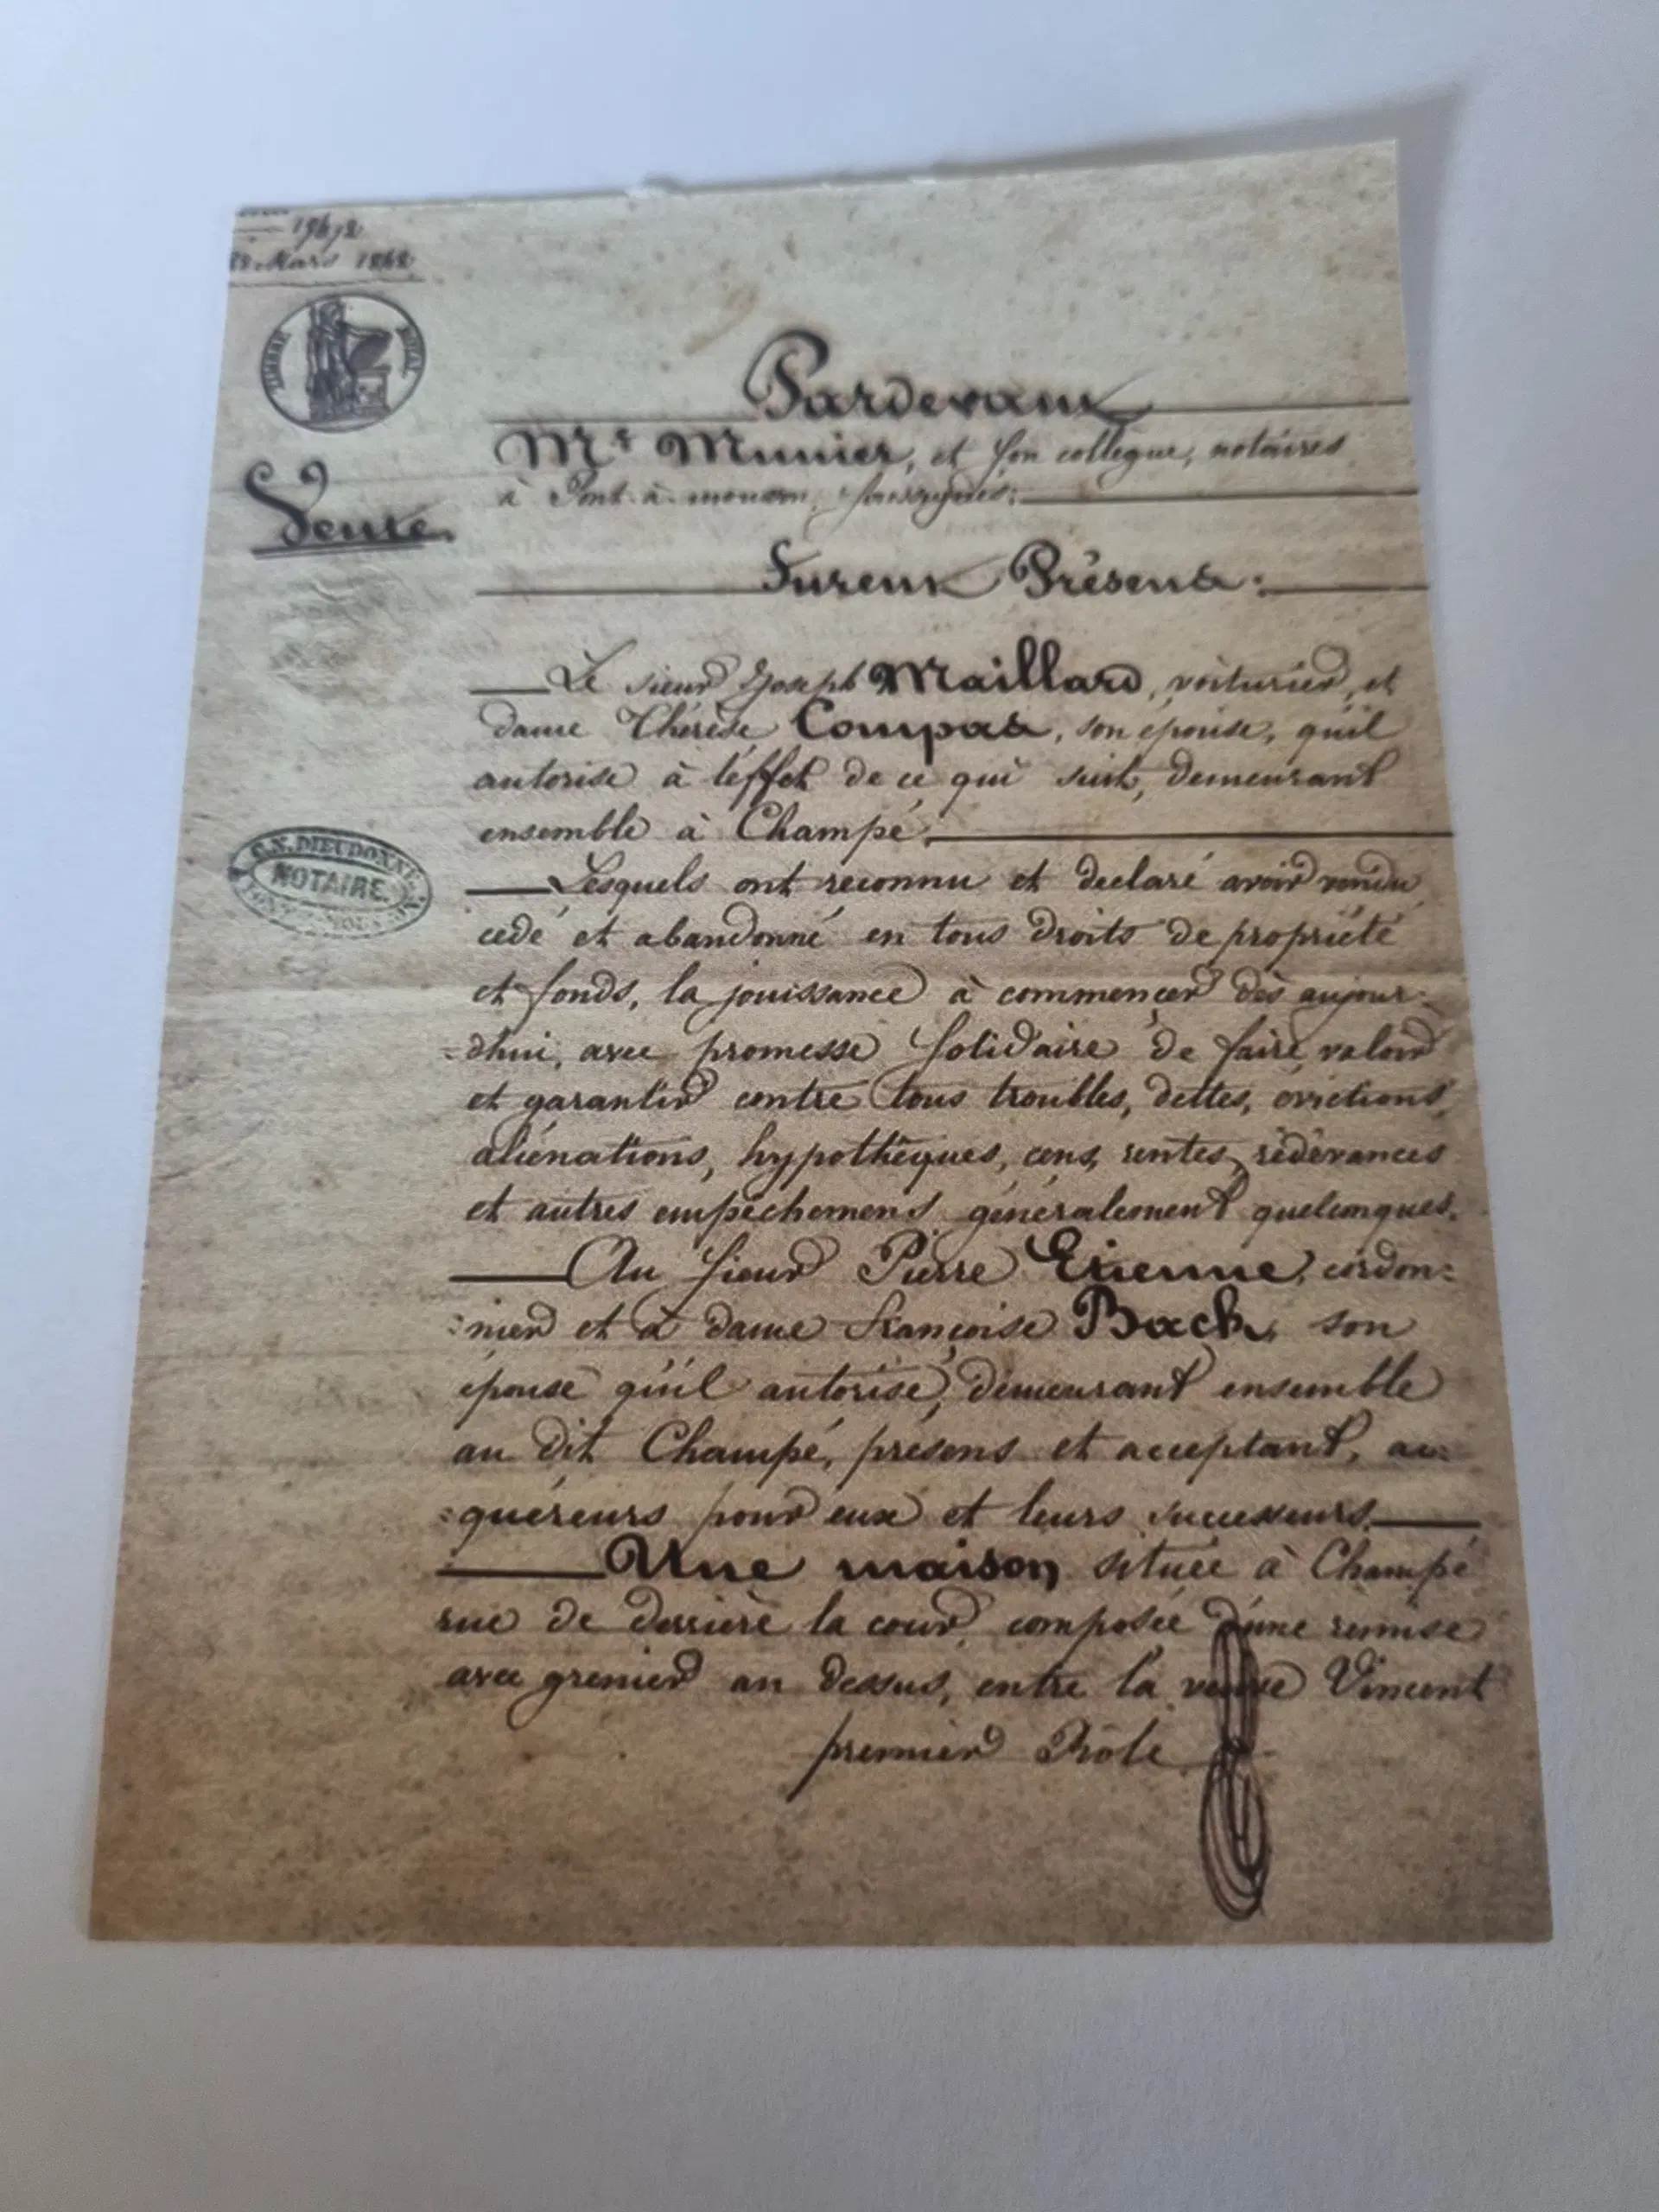 Mars
TIMBRE ROYAL
Vente.
C.N. DIEUDONNÉ
NOTAIRE.
Pardevant
Me Munier, et son collegue, notaires
à Pont-à-mousson, soussignés:
Furent Présens:
Le sieur Joseph Maillard, voiturier, et
dame Thérèse Compas, son épouse, qu'il
autorise à l'effet de ce qui suit, demeurant
ensemble à Champé.
Lesquels ont reconnu et declaré avoir vendu,
cédé et abandonné en tous droits de propriété
et fonds, la jouissance à commencer dès aujour-
=dhui, avec promesse solidaire de faire valoir
et garantir contre tous troubles, dettes, evictions,
aliénations, hypothèques, cens, rentes, rédévances
et autres empêchemens généralement quelconques.
Au sieur Pierre Etienne, cordon=
=nier et à dame françoise Bach, son
épouse qu'il autorise, demeurant ensemble
au dit Champé, présens et acceptant, ac=
=quéreurs pour eux et leurs successeurs.
Une maison située à Champé
rue de derrière la cour, composée d'une remise
avec grenier au dessus, entre la veuve Vincent
premier Rôle